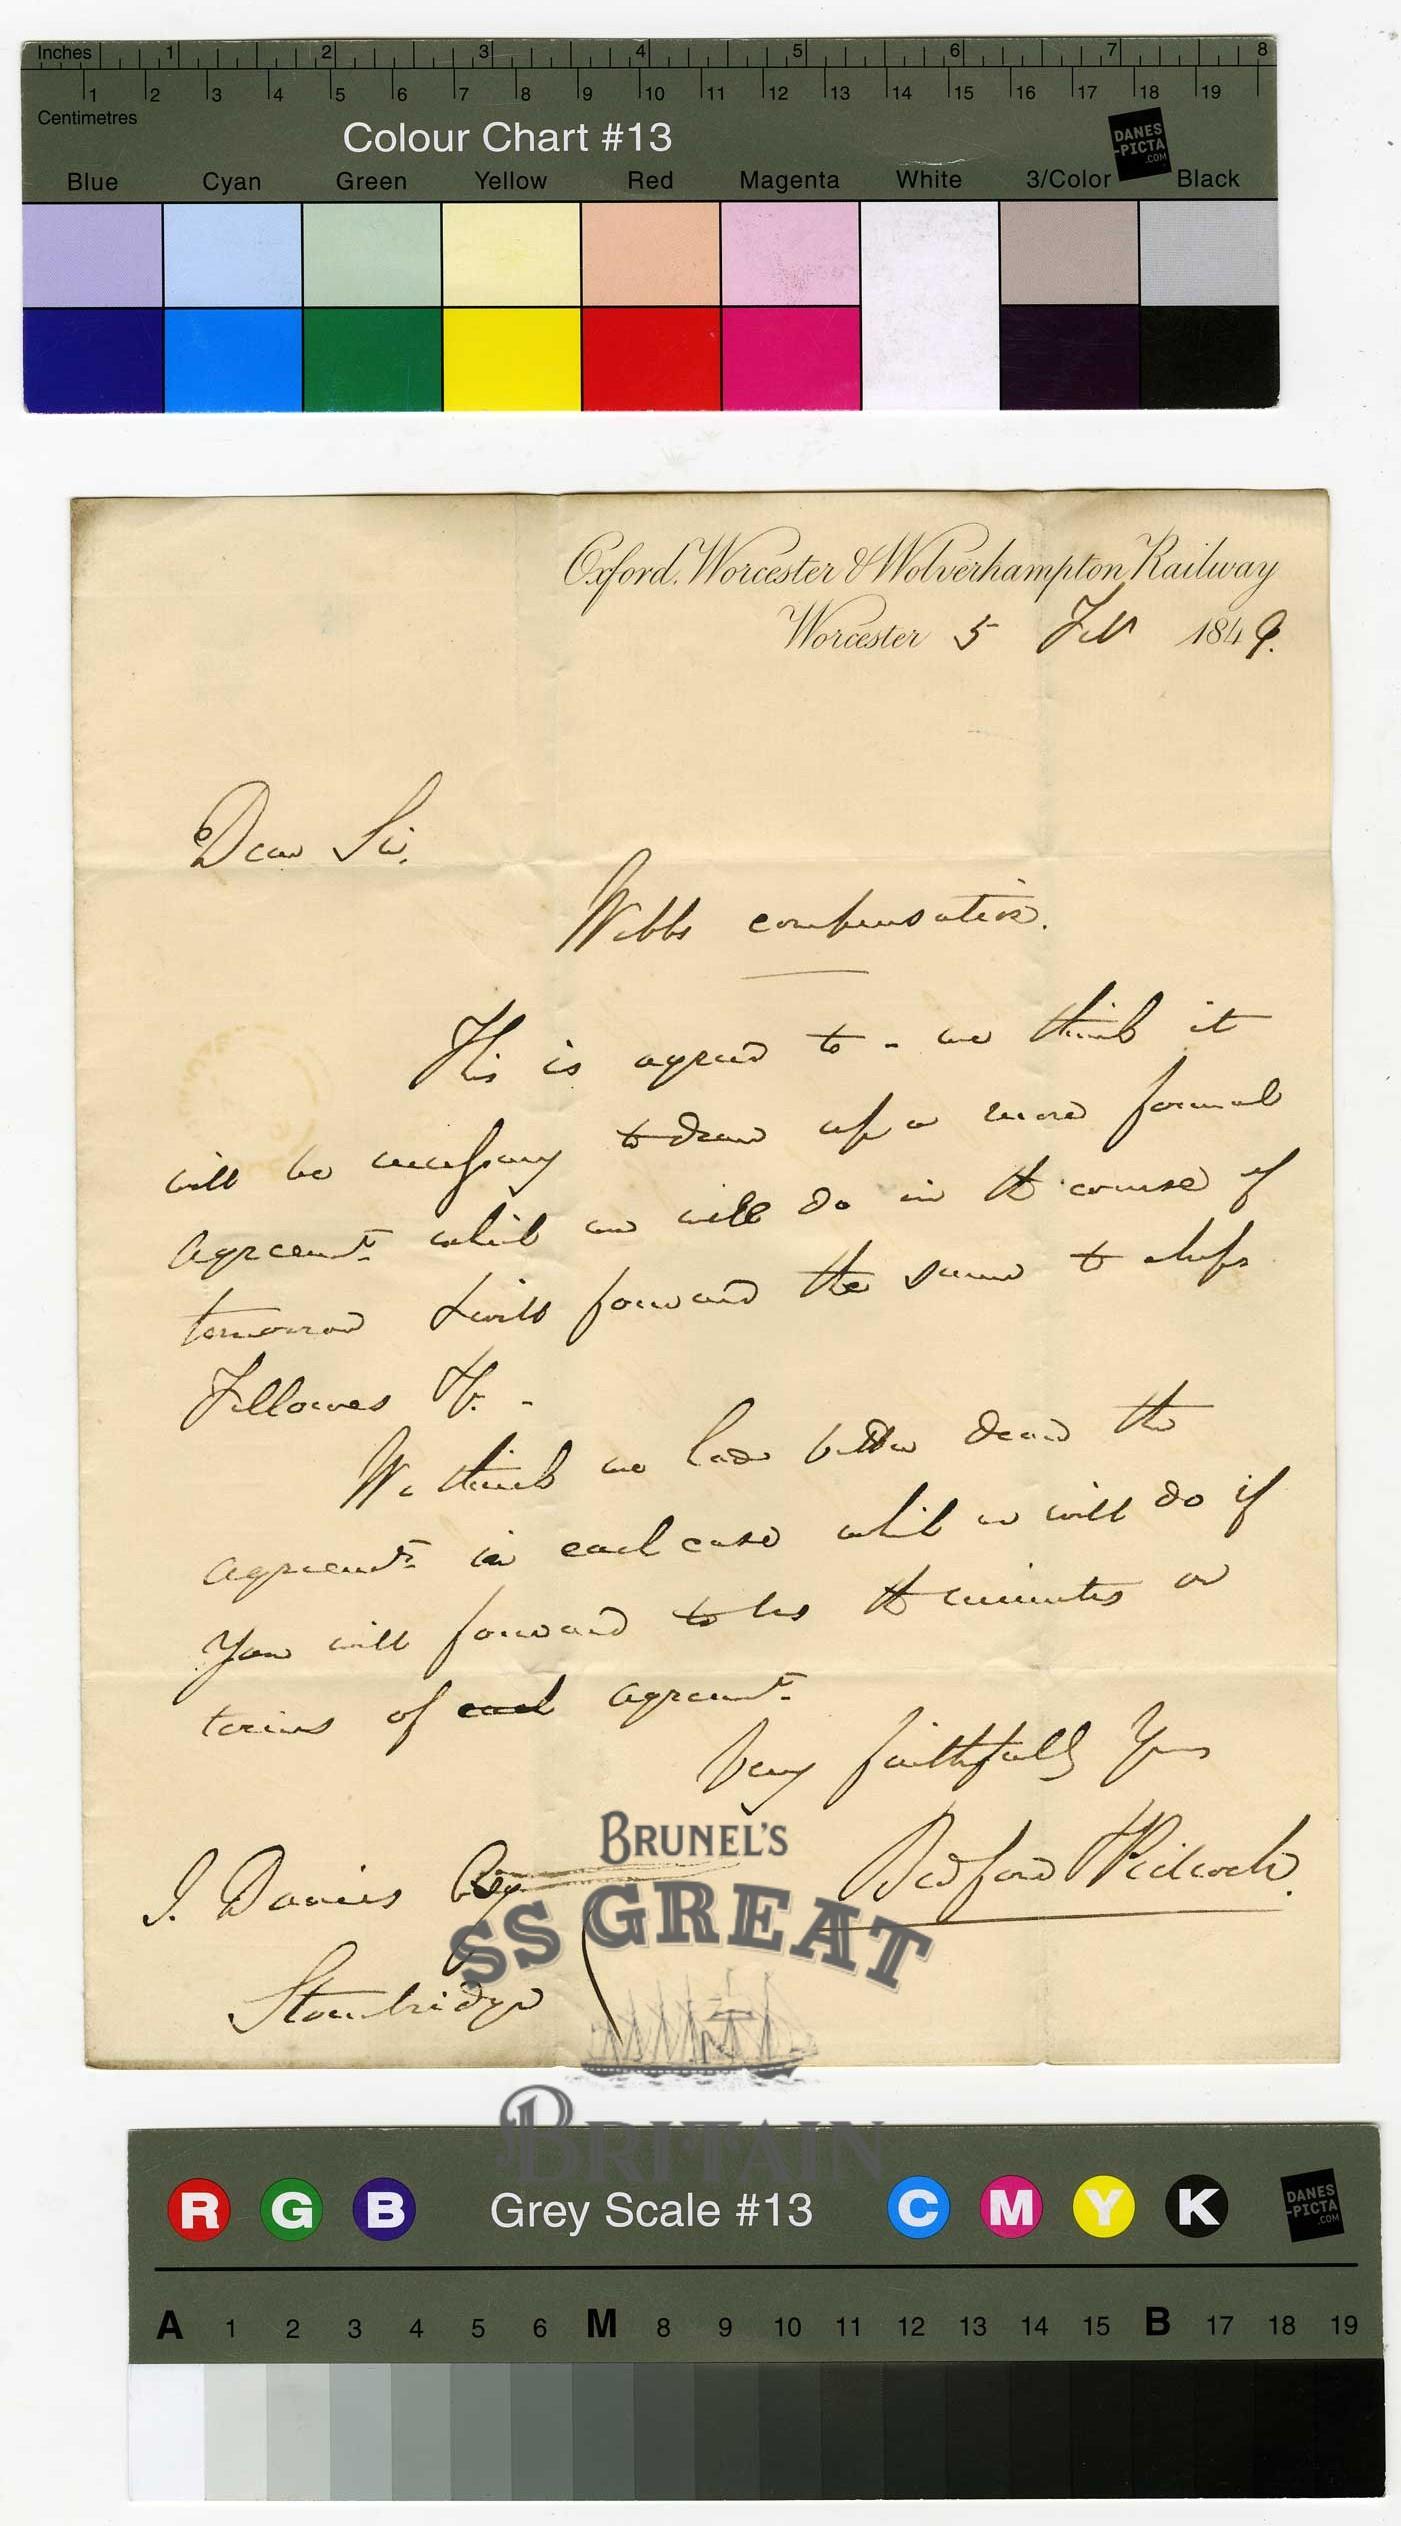 Inches 1 2 3 4 5 6 7 8
1 2 3 4 5 6 7 8 9 10 11 12 13 14 15 16 17 18 19
Centimetres
Colour Chart #13
DANES
-PICTA
.COM
Blue Cyan Green Yellow Red Magenta White 3/Color Black
Oxford, Worcester & Wolverhampton Railway
Worcester 5 Feb 1849.
Dear Sir,
Webbs compensation.
This is agreed to - we think it
will be necessary to draw up a more formal
agreemt. which we will do in the course of
tomorrow & will forward the same to Messrs
Fellowes &c. -
We think we had better draw the
agreemts. in each case which we will do if
You will forward to us the minutes or
terms of agreemt.
Very faithfully Yrs
Bedford & Pidcock.
J. Davies Esq
Stourbridge
BRUNEL'S
SS GREAT
BRITAIN
R G B Grey Scale #13 C M Y K
DANES
-PICTA
.COM
A 1 2 3 4 5 6 M 8 9 10 11 12 13 14 15 B 17 18 19